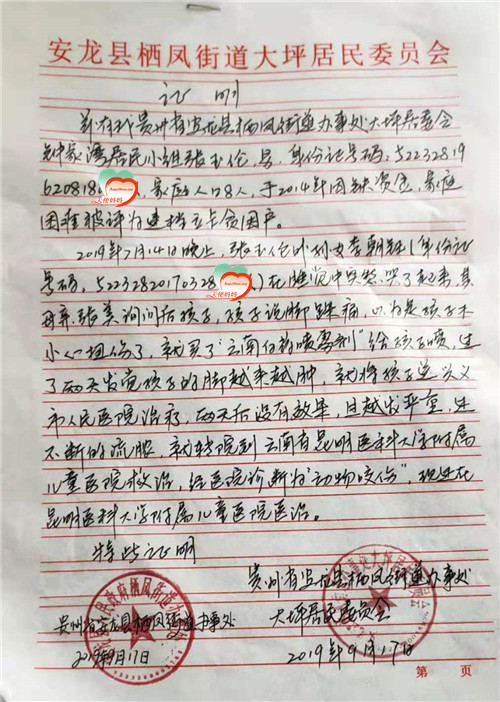 安龙县栖凤街道大坪居民委员会
证明
兹有我贵州省安龙县栖凤街道办事处大坪居委会
居民小组张玉伦,男,身份证号码:52232819
6208184 天使妈妈 ,家庭人口8人,于2014年因缺资金,家庭
困难被评为建档立卡贫困户。
2019年7月14日晚上,张玉伦外孙女李朝钰(身份证
号码:52232820170328 天使妈妈 )在睡觉中突然哭了起来,其
母亲张美询问后孩子,孩子说脚踝痛,以为是孩子不
小心扭伤了,就买了“云南白药喷雾剂”给孩子喷,过
了两天发觉孩子的脚越来越肿,就将孩子送兴义
市人民医院治疗,两天后没有效果,且越发严重,还
不断的流脓,就转院到云南省昆明医科大学附属
儿童医院救治,经医院诊断为“动物咬伤”,现还在
昆明医科大学附属儿童医院医治。
特此证明
贵州省安龙县栖凤街道办事处
贵州省安龙县栖凤街道办事处
大坪居民委员会
2019年9月17日
2019年9月17日
第 页